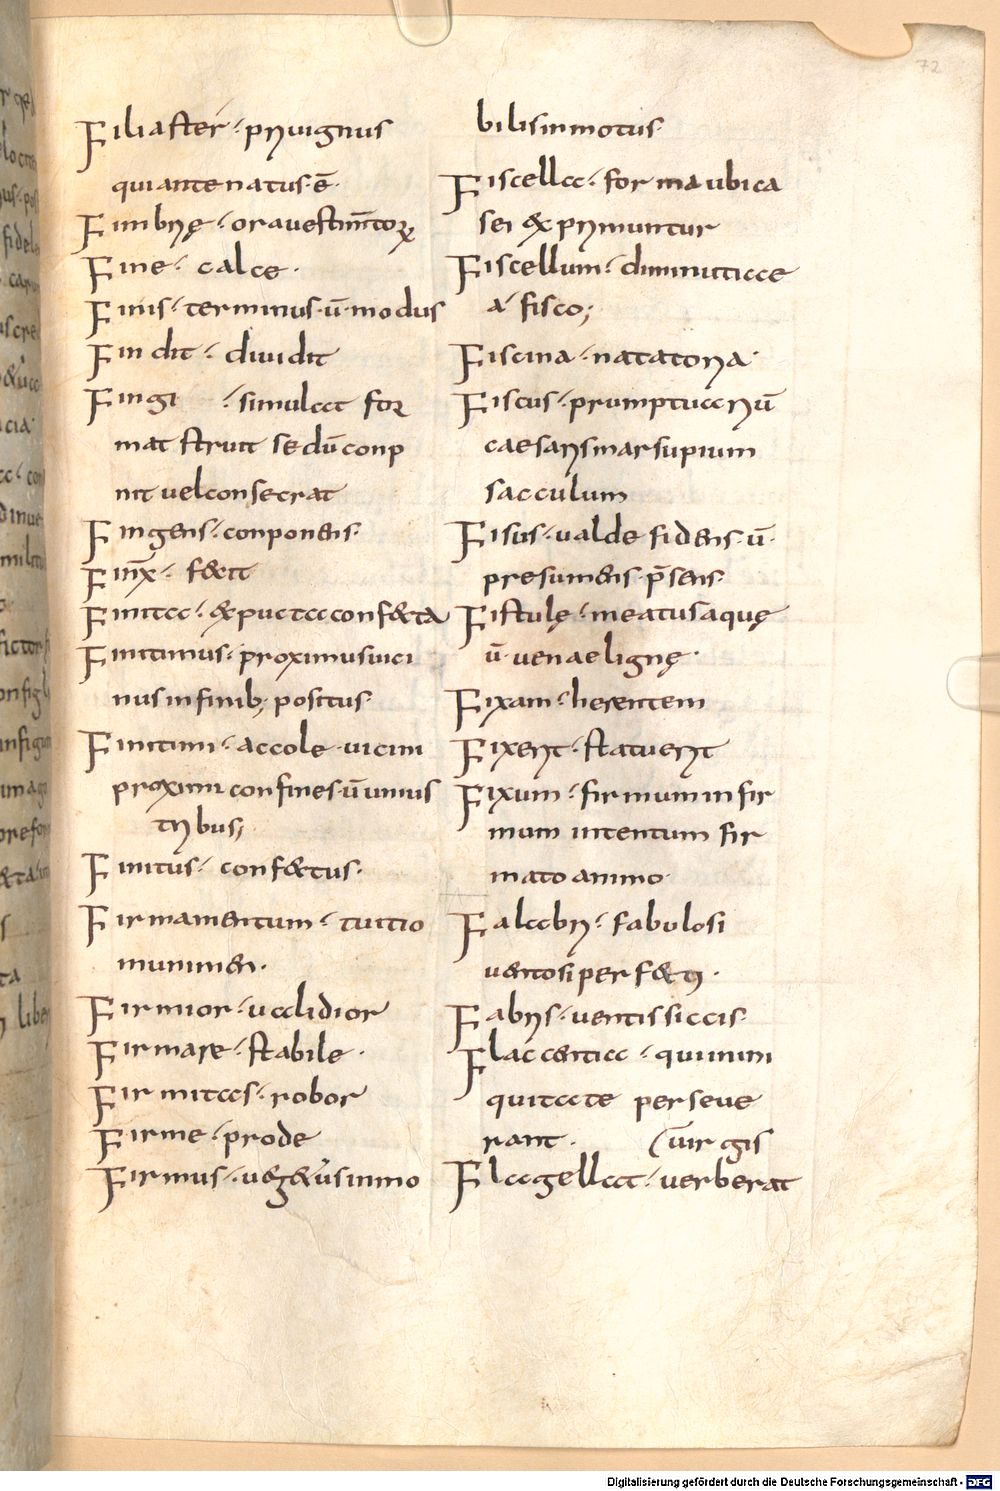 72
Filiaster · priuignus
qui ante natus · ē ·
Fimbrię · ora uestim̄torꝝ
Fine · calce ·
Finis · terminus · ū · modus
Findit · diuidit
Fingi · simulat for
mat struit sedū conp
nit uel consecrat
Fingens · conponens ·
Finx̄ · fecit
Finita · expucta confecta
Finitimus · proximus uici
nus in finib; positus ·
Finitimi · accole · uicini
proximi confines · ū unius
tribus;
Finitus · confectus ·
Firmamentum · tuitio
munimen ·
Firmior · ualidior
Firmare · stabile ·
Firmitas · robor
Firme · prode
Firmus · uegetus immo
bilis inmotus ·
Fiscella · forma ubi ca
sei exprimuntur
Fiscellum · diminutiue
a fisco;
Fiscina · natatoria ·
Fiscus · prumptuariū
caesaris marsupium
sacculum
Fisus · ualde fidens · ū ·
presumens · p̄sens ·
Fistulę · meatus aquę
ū · uenae lignę ·
Fixam · herentem
Fixerit · statuerit
Fixum · firmum in fir
mum intentum fir
mato animo ·
Falabri · fabulosi
uentosi per
Fabris · uentis siccis ·
Flaccentia · qui inini
quitate perseue
rant · uirgis
Flagellat · uerberat
Digitalisierung gefördert durch die Deutsche Forschungsgemeinschaft - DFG